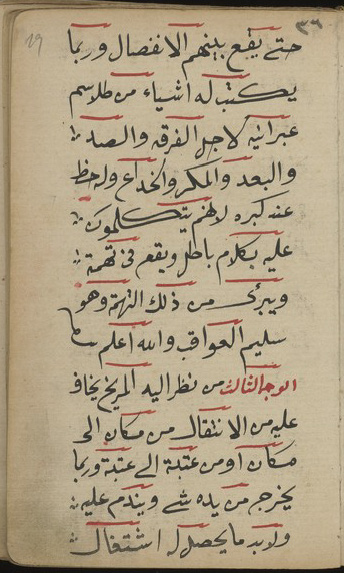 ٣٦
19
حتى يقع بينهم الانفصال وربما
يكتب له اشياء من طلاسم
عبرانيه لاجل الفرقه والصد
والبعد والمكر والخداع وله حظ
عند كبره لانهم يتكلمون
عليه بكلام باطل ويقع فى تهمة
ويبرئ من ذلك التهمة وهو
سليم العواقب والله اعلم
الوجه الثالث من نظر اليه المريخ يخاف
عليه من الانتقال من مكان الى
مكان اومن عتبة الى عتبة وربما
يخرج من يده شے ويندم عليه
ولابد ما يحصل له اشتغال